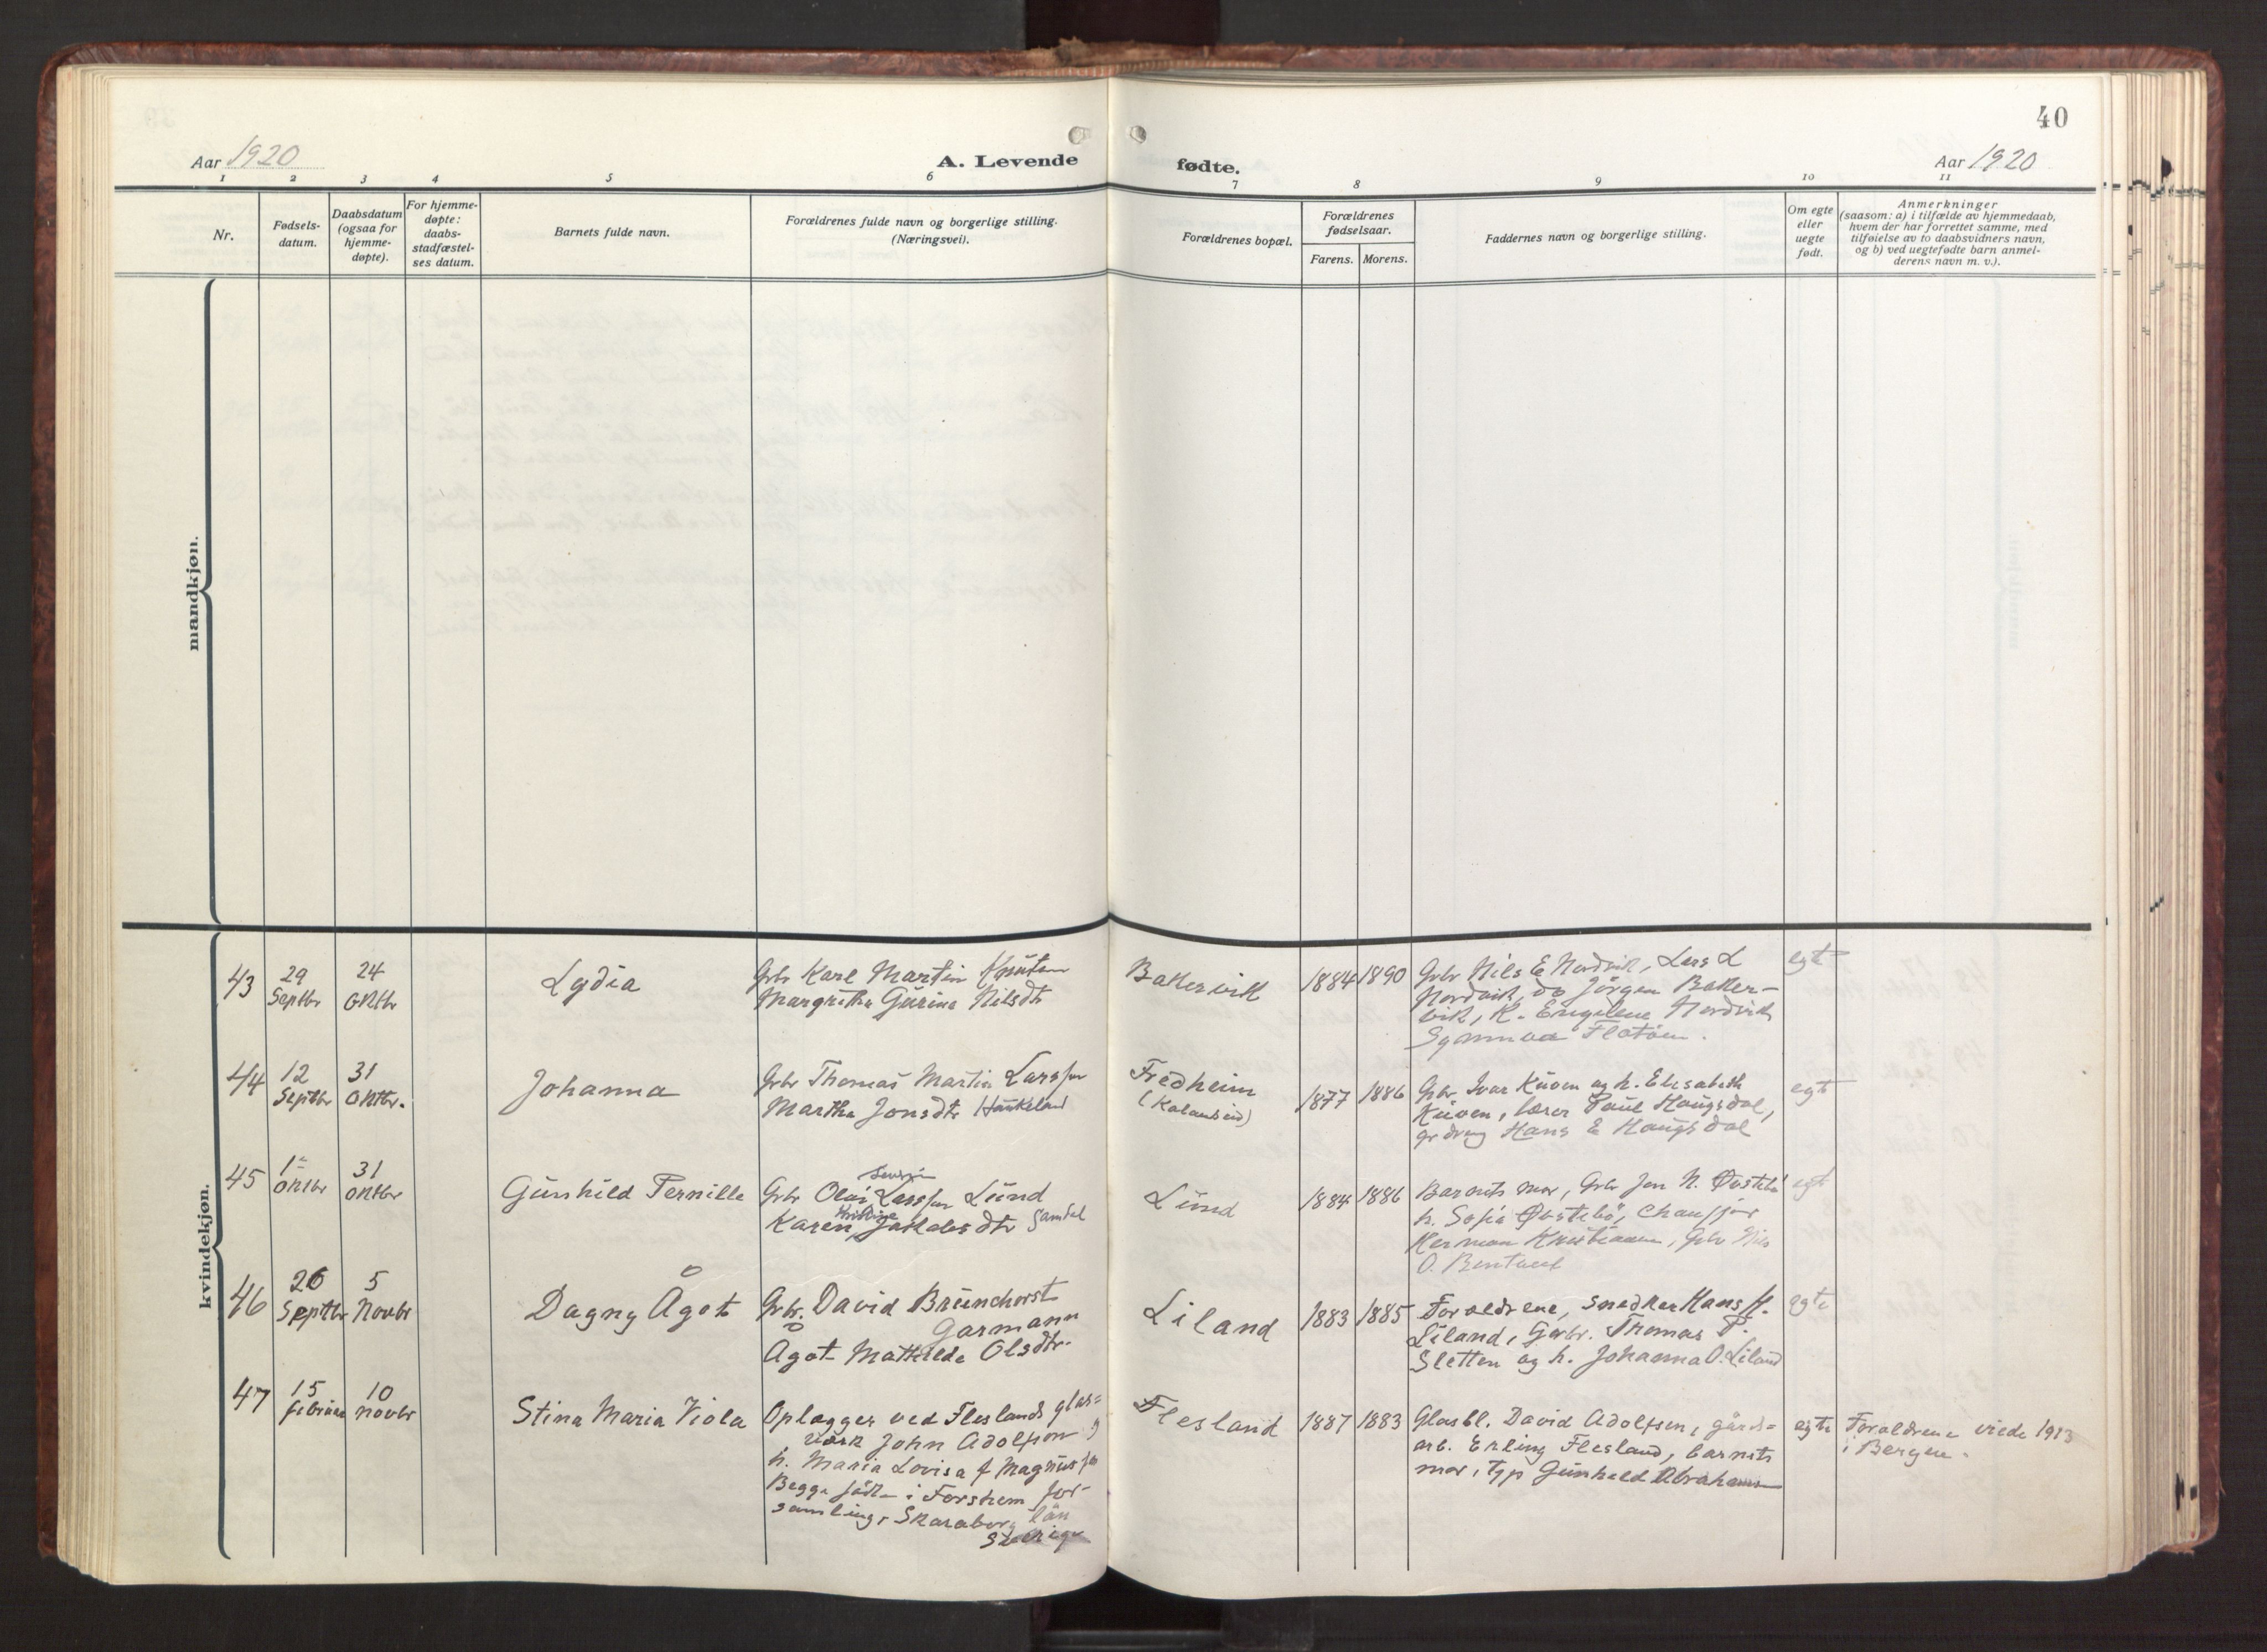 40
Aar 1920
A. Levende
fødte.
Aar 1920
1 2 3 4 5 6 7 8 9 10 11
Nr.
Fødsels-
datum.
Daabsdatum
(ogsaa for
hjemme-
døpte).
For hjemme-
døpte:
daabs-
stadfæstel-
ses datum.
Barnets fulde navn.
Forældrenes fulde navn og borgerlige stilling.
(Næringsvei).
Forældrenes bopæl.
Forældrenes
fødselsaar.
Farens. Morens.
Faddernes navn og borgerlige stilling.
Om egte
eller
uegte
født.
Anmerkninger
(saasom: a) i tilfælde av hjemmedaab,
hvem der har forrettet samme, med
tilføielse av to daabsvidners navn,
og b) ved uegtefødte barn anmel-
derens navn m. v.).
mandkjøn.
kvindekjøn.
43
29
Septbr
24
Oktbr
Lydia
Grbr Karl Martin Knutsen
Margrethe Gurine Nilsdtr
Bakervik
1884 1890
Grbr Nils E Nordvik, Lars L
Nordvik, do Jörgen Baker-
vik, K. Engelene Nordvik
Flatöen.
egte
44
12
Septbr
31
Oktbr.
Johanna
Grbr Thomas Martin Larssen
Martha Jonsdtr Haukeland
Fredheim
1877 1886
Grbr Ivar Kuven og h. Elisabeth
Kuven, lærer Paul Haugsdal,
grdreng Hans E Haugsdal
egte
45
1ste
Oktbr
31
Oktbr
Gunhild Pernille
Grbr Olai Larssen Lund
Kristine
Karen, Jakobsdtr
Lund
1884 1886
Barnets mor, Grbr Jon N. Övstebö
h. Sofie Övstebö, Chauffør
Herman Kristiansen, Grbr Nils
O.
egte
46
26
Septbr
5
Novbr
Dagny Ågot
Grbr. David Brunchorst
Garmann
Ågot Mathilde Olsdtr.
Liland
1883 1885
Foreldrene, Snedker Hans H.
Liland, Grbr. Thomas P.
Sletten og h. Johanna O. Liland
egte
47
15
februar
10
novbr
Stina Maria Viola
Oplægger ved Fleslands glas=
værk John Adolfson
h. Maria Lovisa f Magnusson
Begge fødte i Forshem for-
samling, Skaraborg län
Sverige
Flesland
1887 1883
Glasbl. David Adolfsen, gårds=
arb. Erling Flesland, barnets
mor, typ Gunhild Abrahamsen
egte
Foreldrene viede 1913
i Bergen.